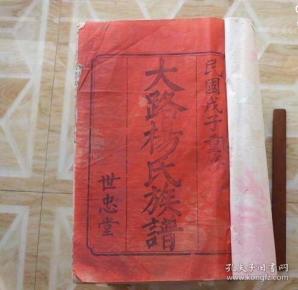 民國戊子重
大路楊氏族譜
世忠堂
孔夫子旧书网
kongfz.com